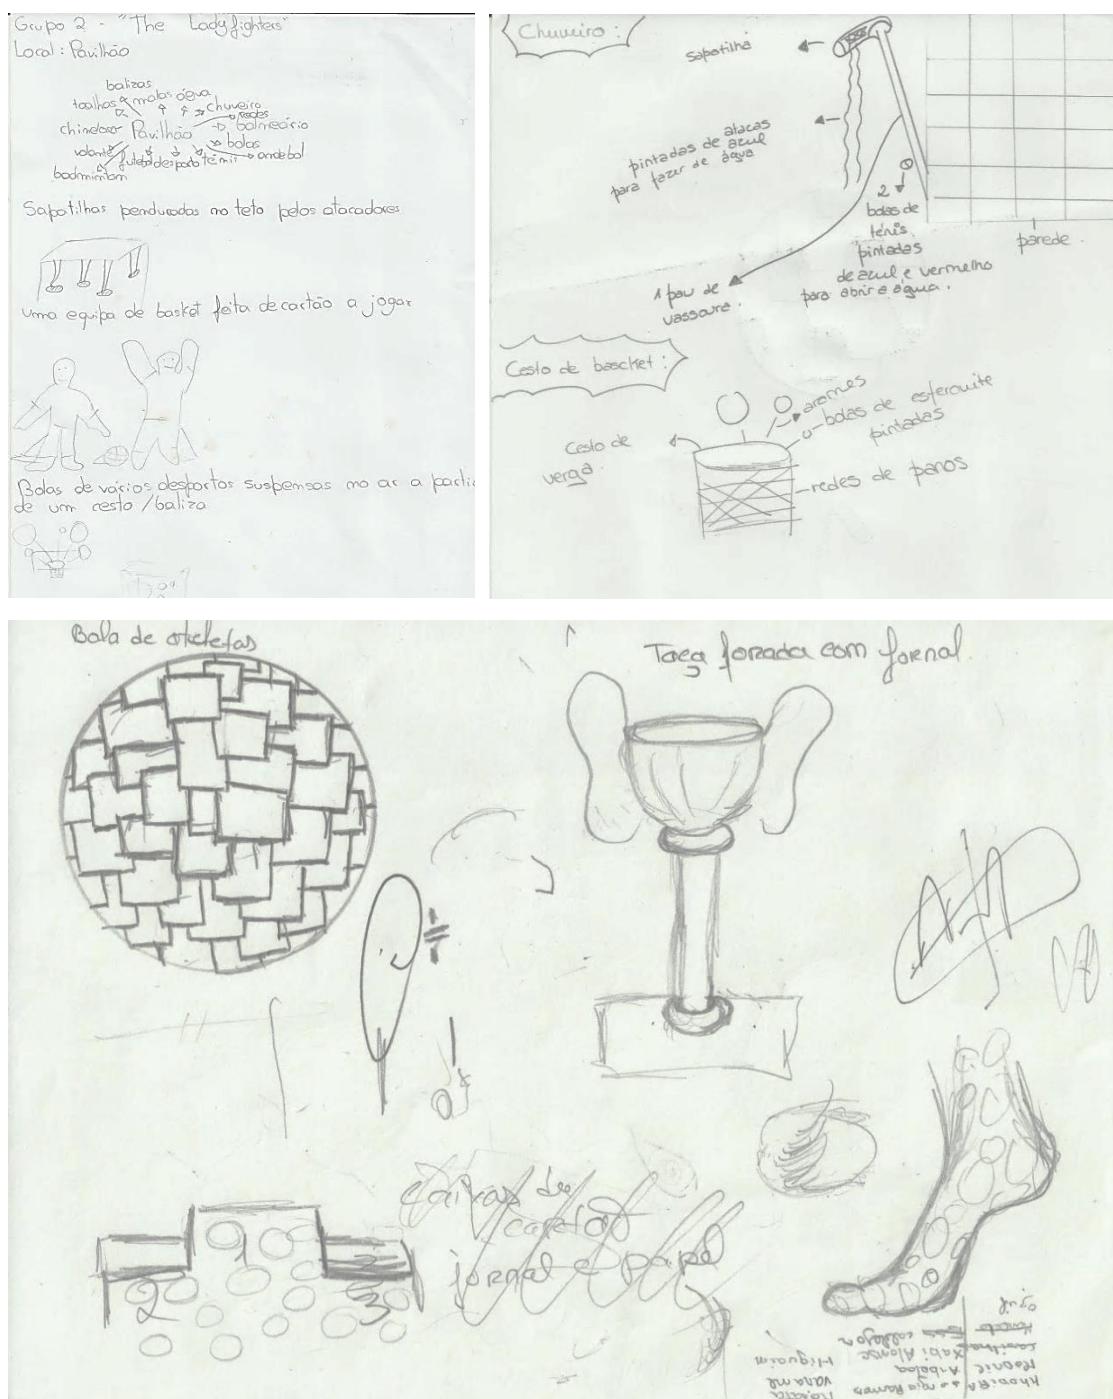 Grupo 2 - "The Ladyfighters"
Local: Pavilhão
balizas
toalhas malas água chuveiro
redes
chinelos Pavilhão balneário
volante futebol desporto ténis bolas andebol
badmintom
Sapatilhas penduradas no teto pelos atacadores
uma equipa de basket feita de cartão a jogar
Bolas de vários desportos suspensas no ar a partir
de um cesto / baliza
Chuveiro:
sapatilha
atacas
pintadas de azul
para fazer de água
2
bolas de
ténis
pintadas
de azul e vermelho
para abrir a água.
parede
1 pau de
vassoura.
Cesto de bascket:
Cesto de
verga
arames
bolas de esferovite
pintadas
redes de panos
Bola de
Taça forrada com jornal
Caixas de
cartão
jornal e papel
1
2
3
Xabi Alonso
Arbeloa
Higuain